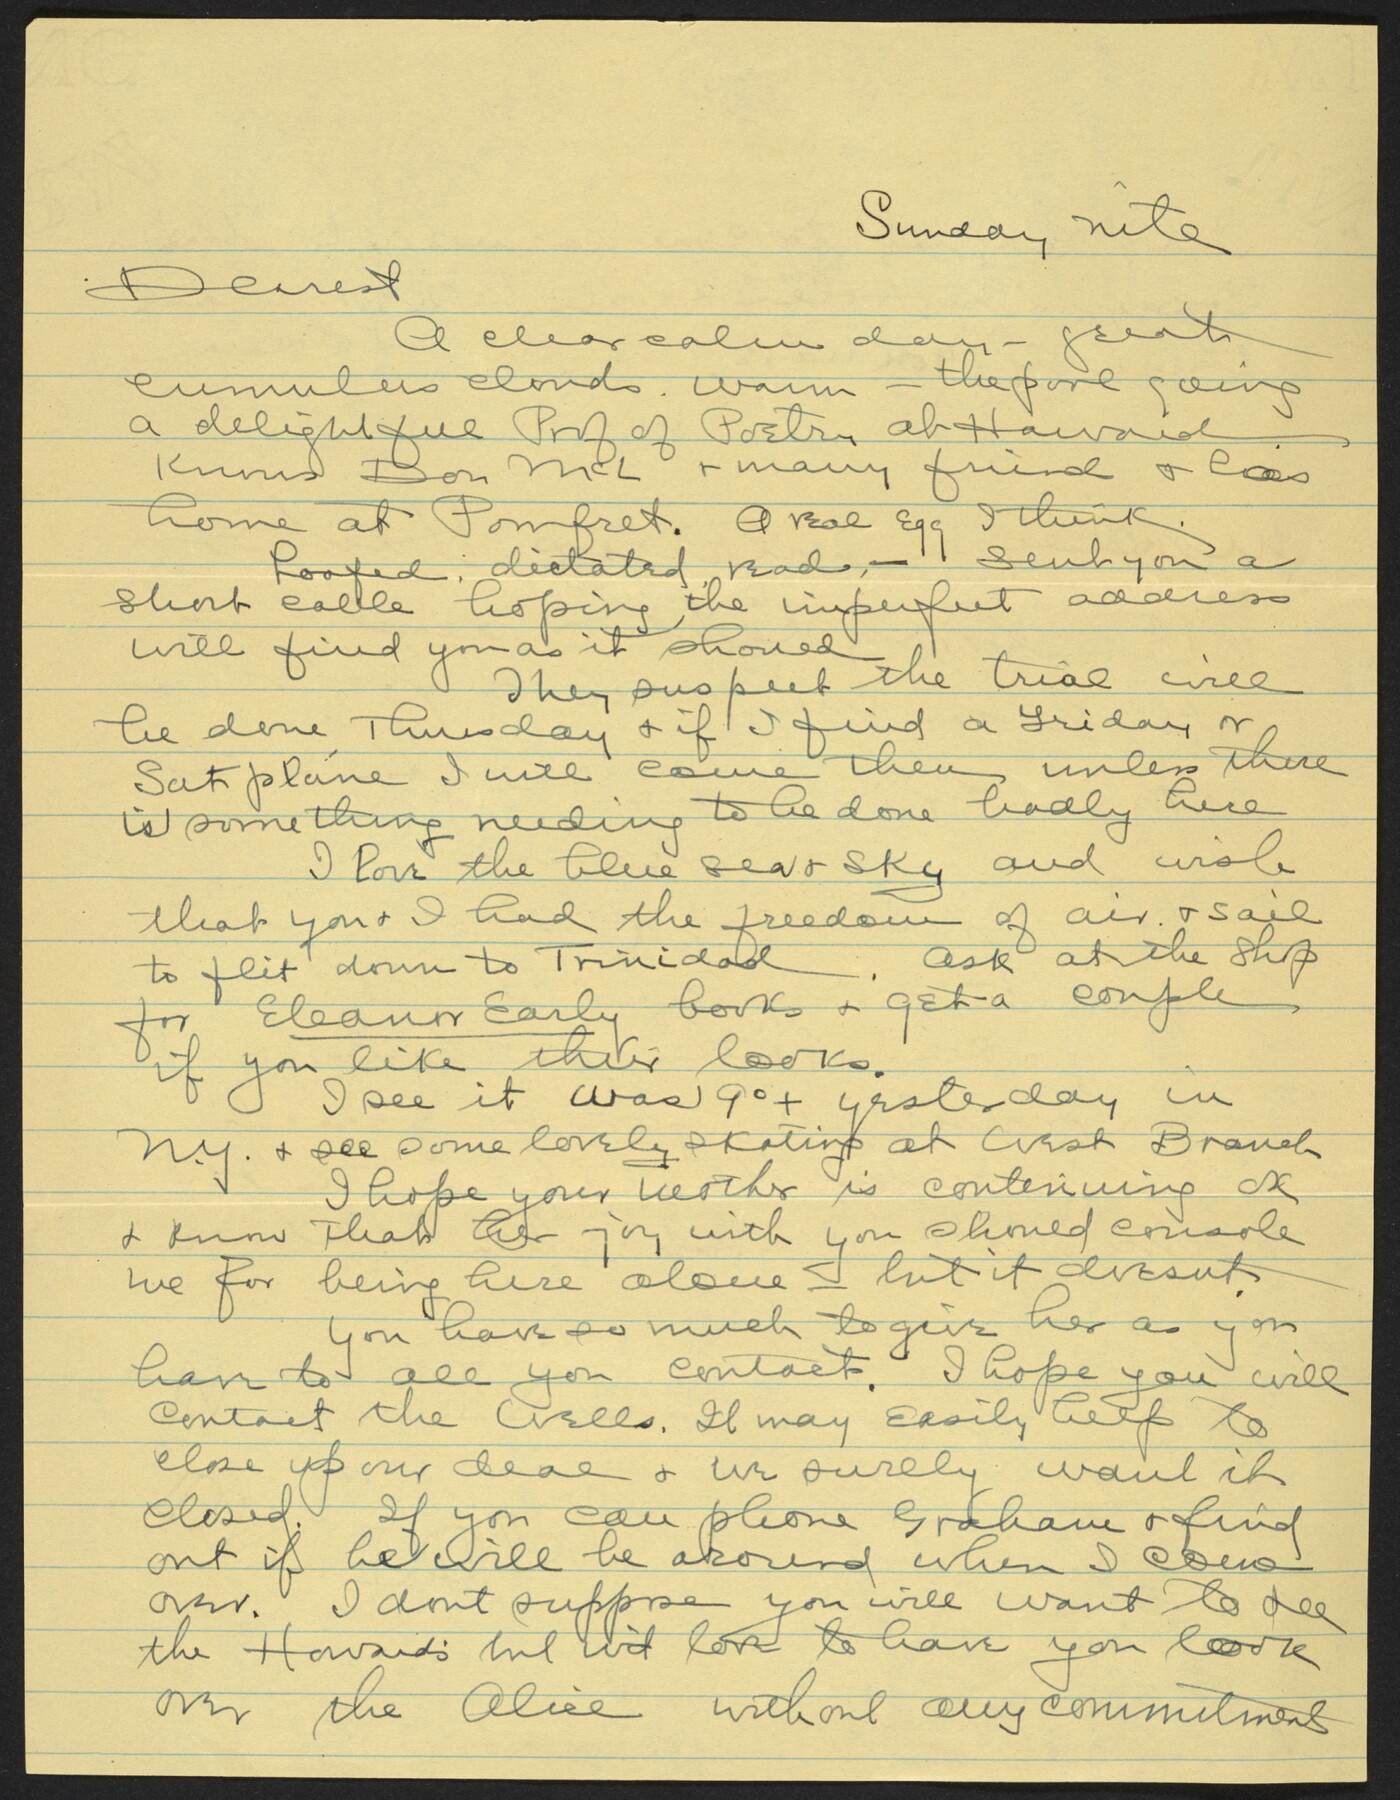 Sunday nite
Dearest
A clear calm day - great
cumulus clouds. warm - the pool going
a delightful Prof of Poetry at Howard
Knows Don McL + many friend + has
home at Pomfret. A real egg I think.
Loafed, dictated, read, - sent you a
short cable hoping the imperfect address
will find you as it should
They suspect the trial will
be done Thursday + if I find a Friday or
Sat plane I will come then unless there
is something needing to be done badly here
I love the blue sea + sky and wish
that you + I had the freedom of air. + sail
to flit down to Trinidad. Ask at the Shop
for Eleanor Early books + get a couple
if you like their looks.
I see it was 9° + yesterday in
N.Y. + see some lovely skating at West Branch
I hope your mother is continuing OK
+ know that her joy with you should console
me for being here alone - but it doesnt.
You have so much to give her as you
have to all you contact. I hope you will
contact the Wells. It may easily help to
close up our deal + we surely want it
closed. If you can phone Graham + find
out if he will be around when I come
over. I dont suppose you will want to see
the Howards but wd love to have you look
over the Alice without any commitment